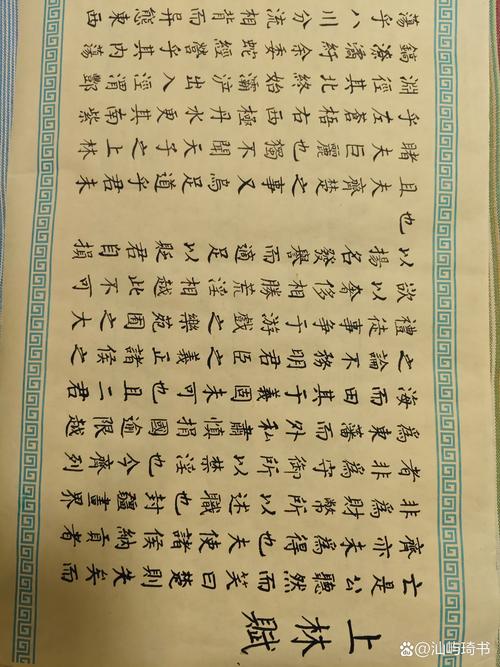 上林賦
亡是公聽然而笑曰楚則失矣而
齊亦未為得也夫使諸侯納貢者
非為財幣所以述職也封疆畫界
者非為守御所以禁淫也今齊列
為東藩而外私肅慎捐國逾限越
海而田其于義固未可也且二君
之論不務明君臣之義正諸侯之
禮徒事爭于游戲之樂苑囿之大
欲以奢侈相勝荒淫相越此不可
以揚名發譽而適足以貶君自損
也
且夫齊楚之事又烏足道乎君未
睹夫巨麗也獨不聞天子之上林
乎左蒼梧右西極丹水更其南紫
淵徑其北終始灞滻出入涇渭酆
鎬潦潏紆余委蛇經營乎其內蕩
蕩乎八川分流相背而异態東西
@汕屿琦书